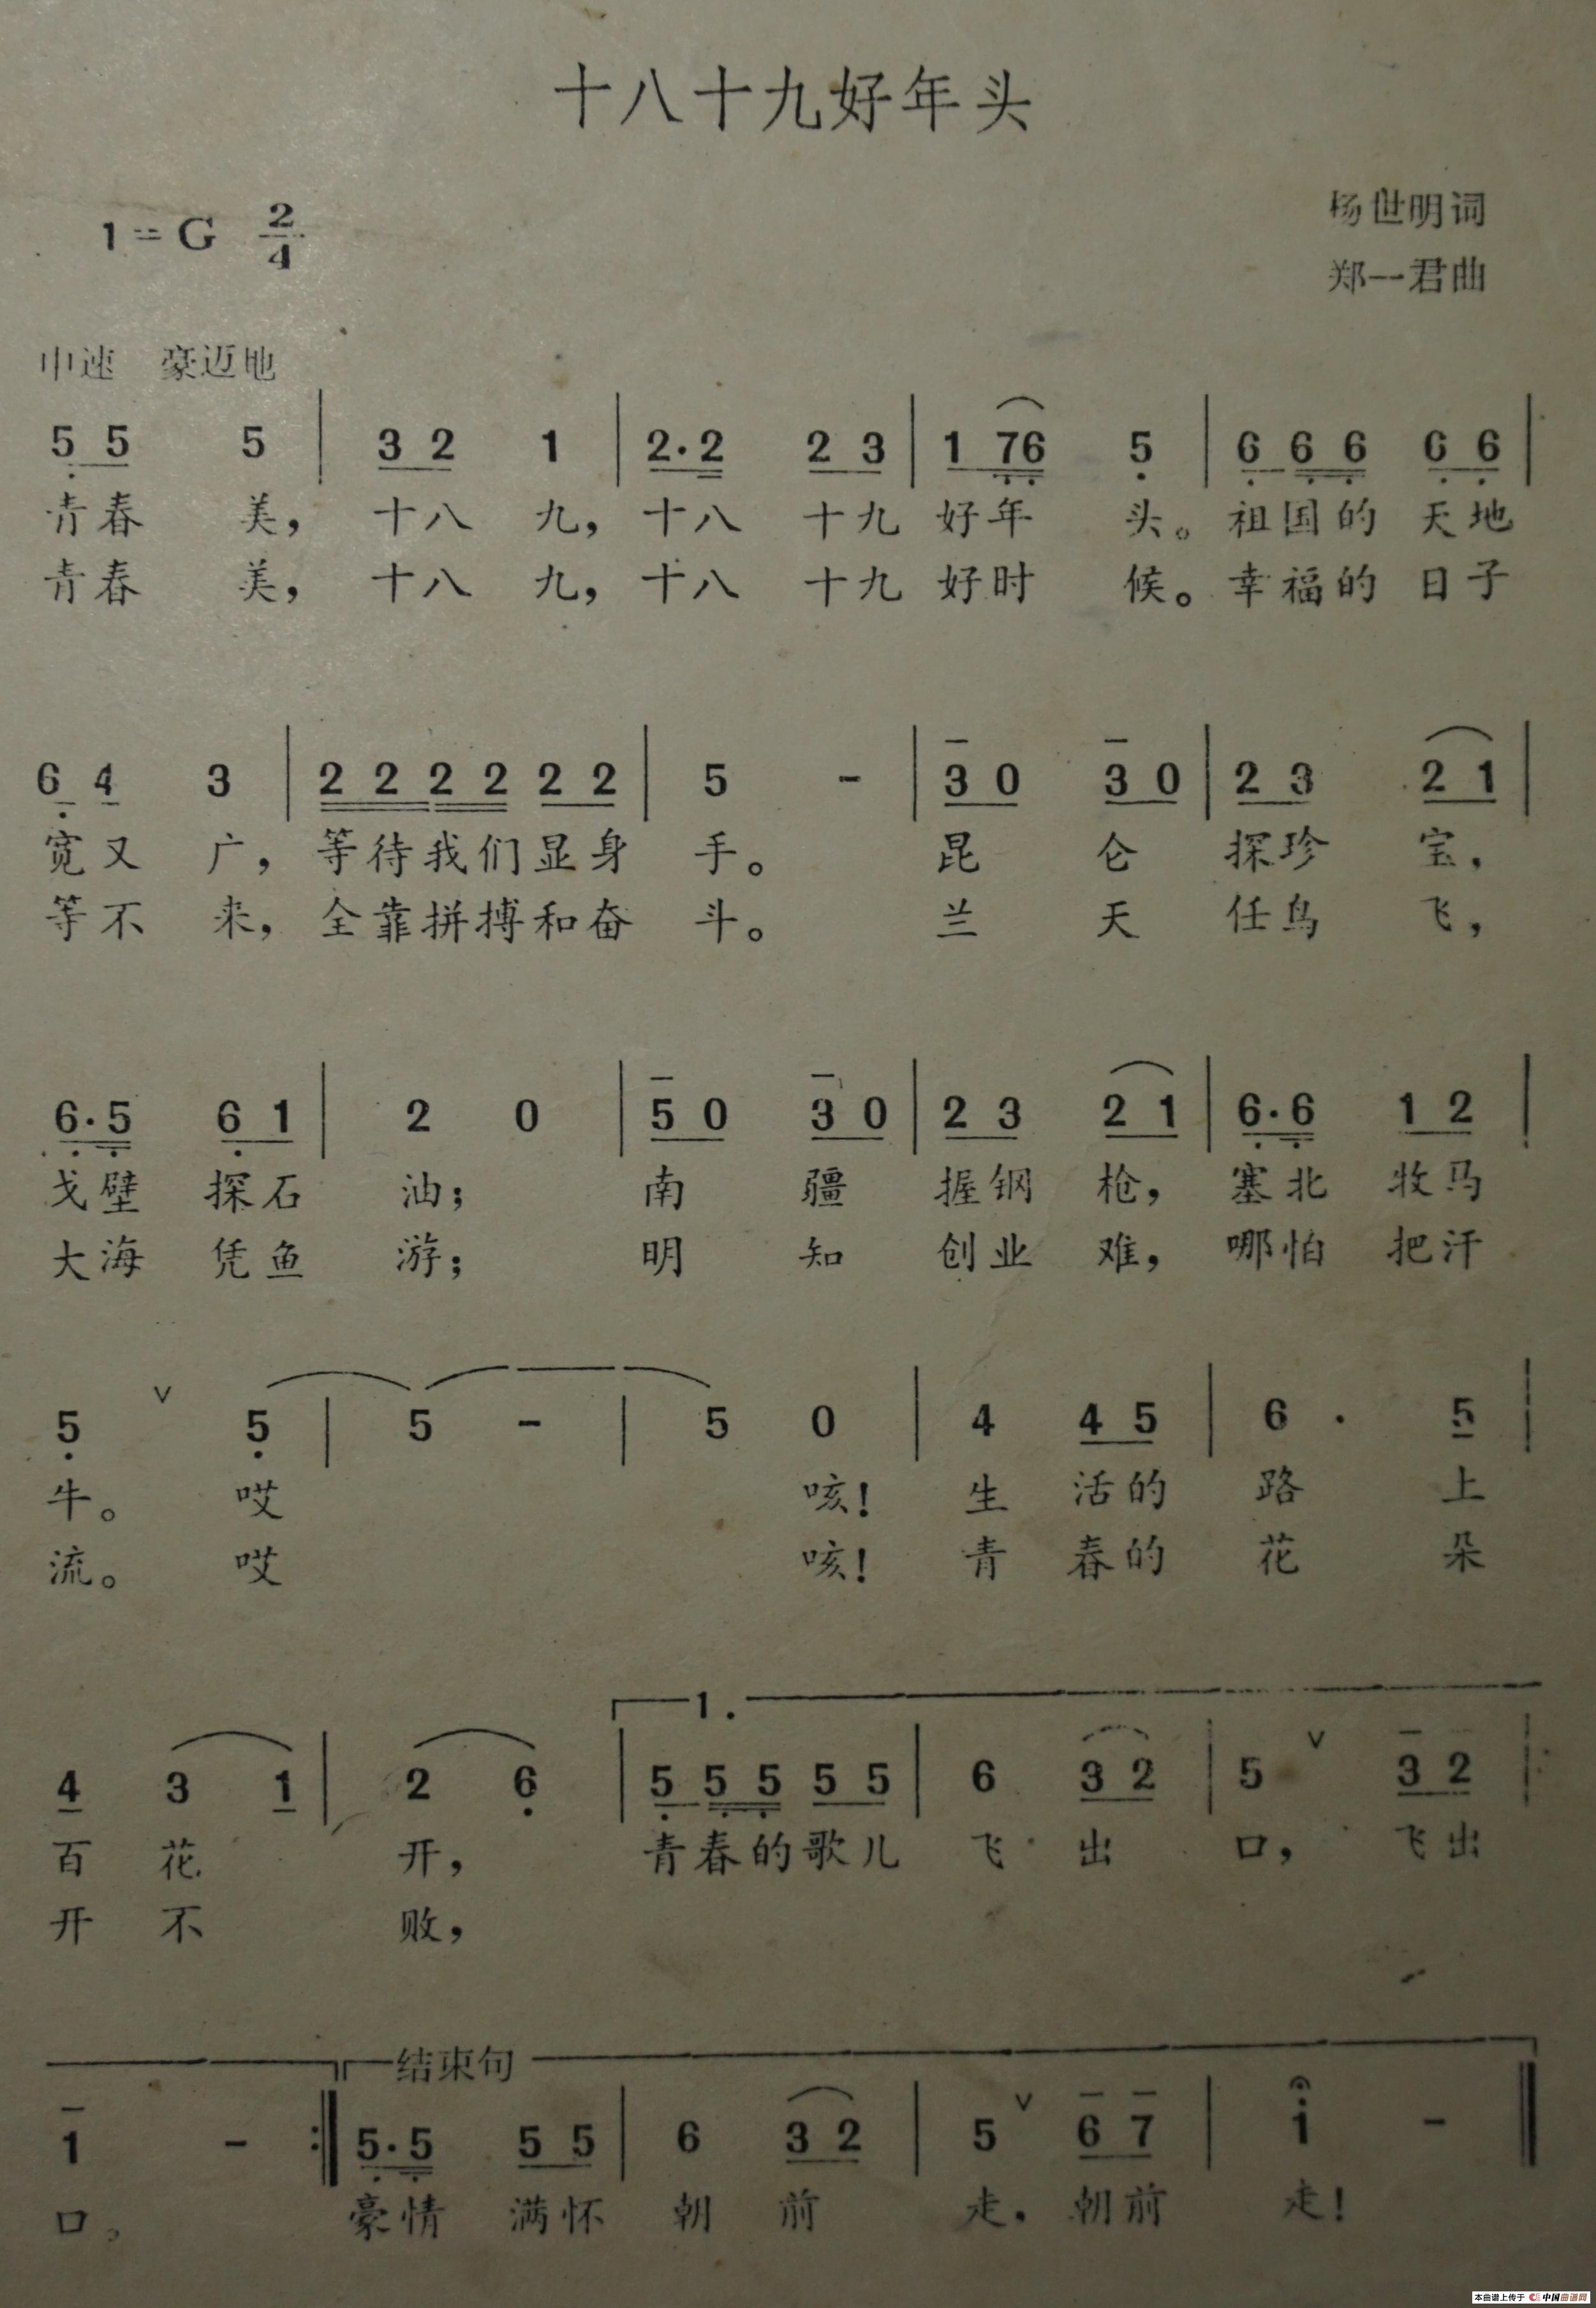 十八十九好年头
1=G 2/4
杨世明词
郑一君曲
中速 豪迈地
5 5 5 | 3 2 1 | 2·2 2 3 | 1 76 5 | 6 6 6 6 6 |
青春 美， 十八 九， 十八 十九 好年 头。 祖国的 天地
青春 美， 十八 九， 十八 十九 好时 候。 幸福的 日子
6 4 3 | 2 2 2 2 2 2 | 5 - | 3 0 3 0 | 2 3 2 1 |
宽又 广， 等待我们显身 手。 昆 仑 探珍 宝，
等不 来， 全靠拼搏和奋 斗。 兰 天 任鸟 飞，
6·5 6 1 | 2 0 | 5 0 3 0 | 2 3 2 1 | 6·6 1 2 |
戈壁 探石 油； 南 疆 握钢 枪， 塞北 牧马
大海 凭鱼 游； 明 知 创业 难， 哪怕 把汗
5 ∨ 5 | 5 - | 5 0 | 4 4 5 | 6 · 5 |
牛。 哎 咳！ 生 活的 路 上
流。 哎 咳！ 青 春的 花 朵
1.
4 3 1 | 2 6 | 5 5 5 5 5 | 6 3 2 | 5 ∨ 3 2 |
百 花 开， 青春的歌儿 飞 出 口， 飞出
开 不 败，
结束句
1 - :‖ 5·5 5 5 | 6 3 2 | 5 ∨ 6 7 | 1 - ‖
口， 豪情 满怀 朝 前 走，朝前 走！
本曲谱上传于 中国曲谱网